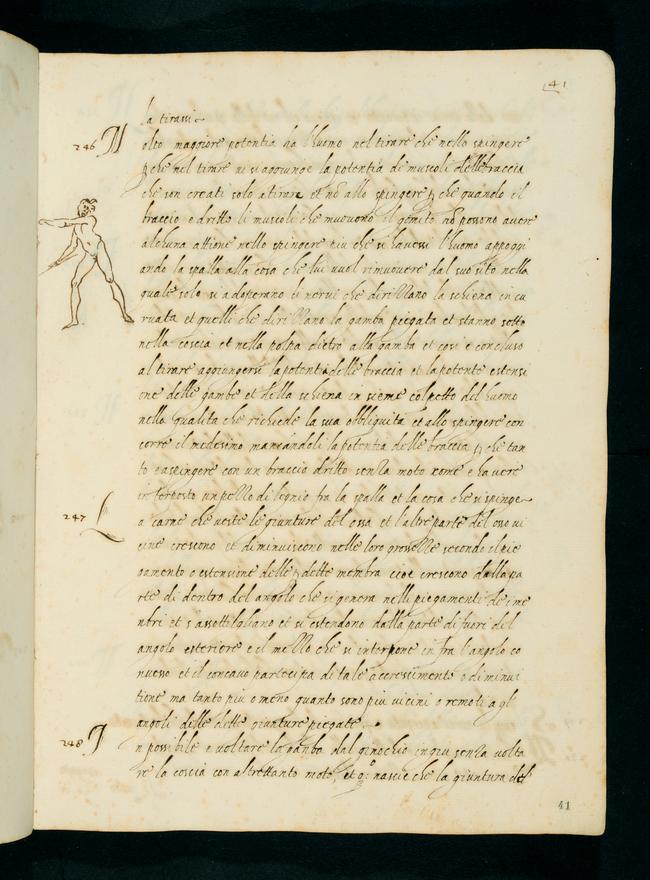 41
la tirassi
246 Molto maggiore potentia ha l'huomo nel tirare che nello spingere
p che nel tirare ui si aggiunge la potentia de muscoli delle braccia
che son creati solo a tirare et nō allo spingere p che quando il
braccio e dritto li muscoli che muouono il gomito nō possono auere
alchuna attione nello spingere piu che si hauessi l'huomo appoggi
ando la spalla alla cosa che lui uuol rimuouere dal suo sito nella
quale solo si adoperano li nerui che dirizzano la schiena incu
ruata et quelli che dirizzano la gamba piegata et stanno sotto
nella coscia et nella polpa dietro alla gamba et cosi e concluso
al tirare aggiungersi la potentia delle braccia et la potente estensi
one delle gambe et della schiena insieme col petto del huomo
nella qualita che richiede la sua obbliquita et allo spingere con
corre il medesimo mancandoli la potentia delle braccia p che tan
to e a spingere con un braccio dritto senza moto come e hauere
interposto un pezzo di legnio fra la spalla et la cosa che si spinge
247 La carne che ueste le giunture del ossa et l'altre parte del osso ui
cine crescono et diminuiscono nelle loro grossezze secondo il pie
gamento o estensione delle p dette membra cioe crescono dalla pa
rte di dentro del angolo che si genera nelli piegamenti de me
mbri et s'assottigliano et si estendono dalla parte di fuori del
angolo esteriore e il mezzo che si interpone in fra l'angolo co
nuesso et il concauo partecipa di tale accrescimento o diminui
tione ma tanto piu o meno quanto sono piu uicini o remoti agli
angoli delle dette giunture piegate
248 Inpossibile e uoltare la ganba dal ginochio in giu senza uolta
re la coscia con altrettanto moto, et nascie che la giuntura del
41